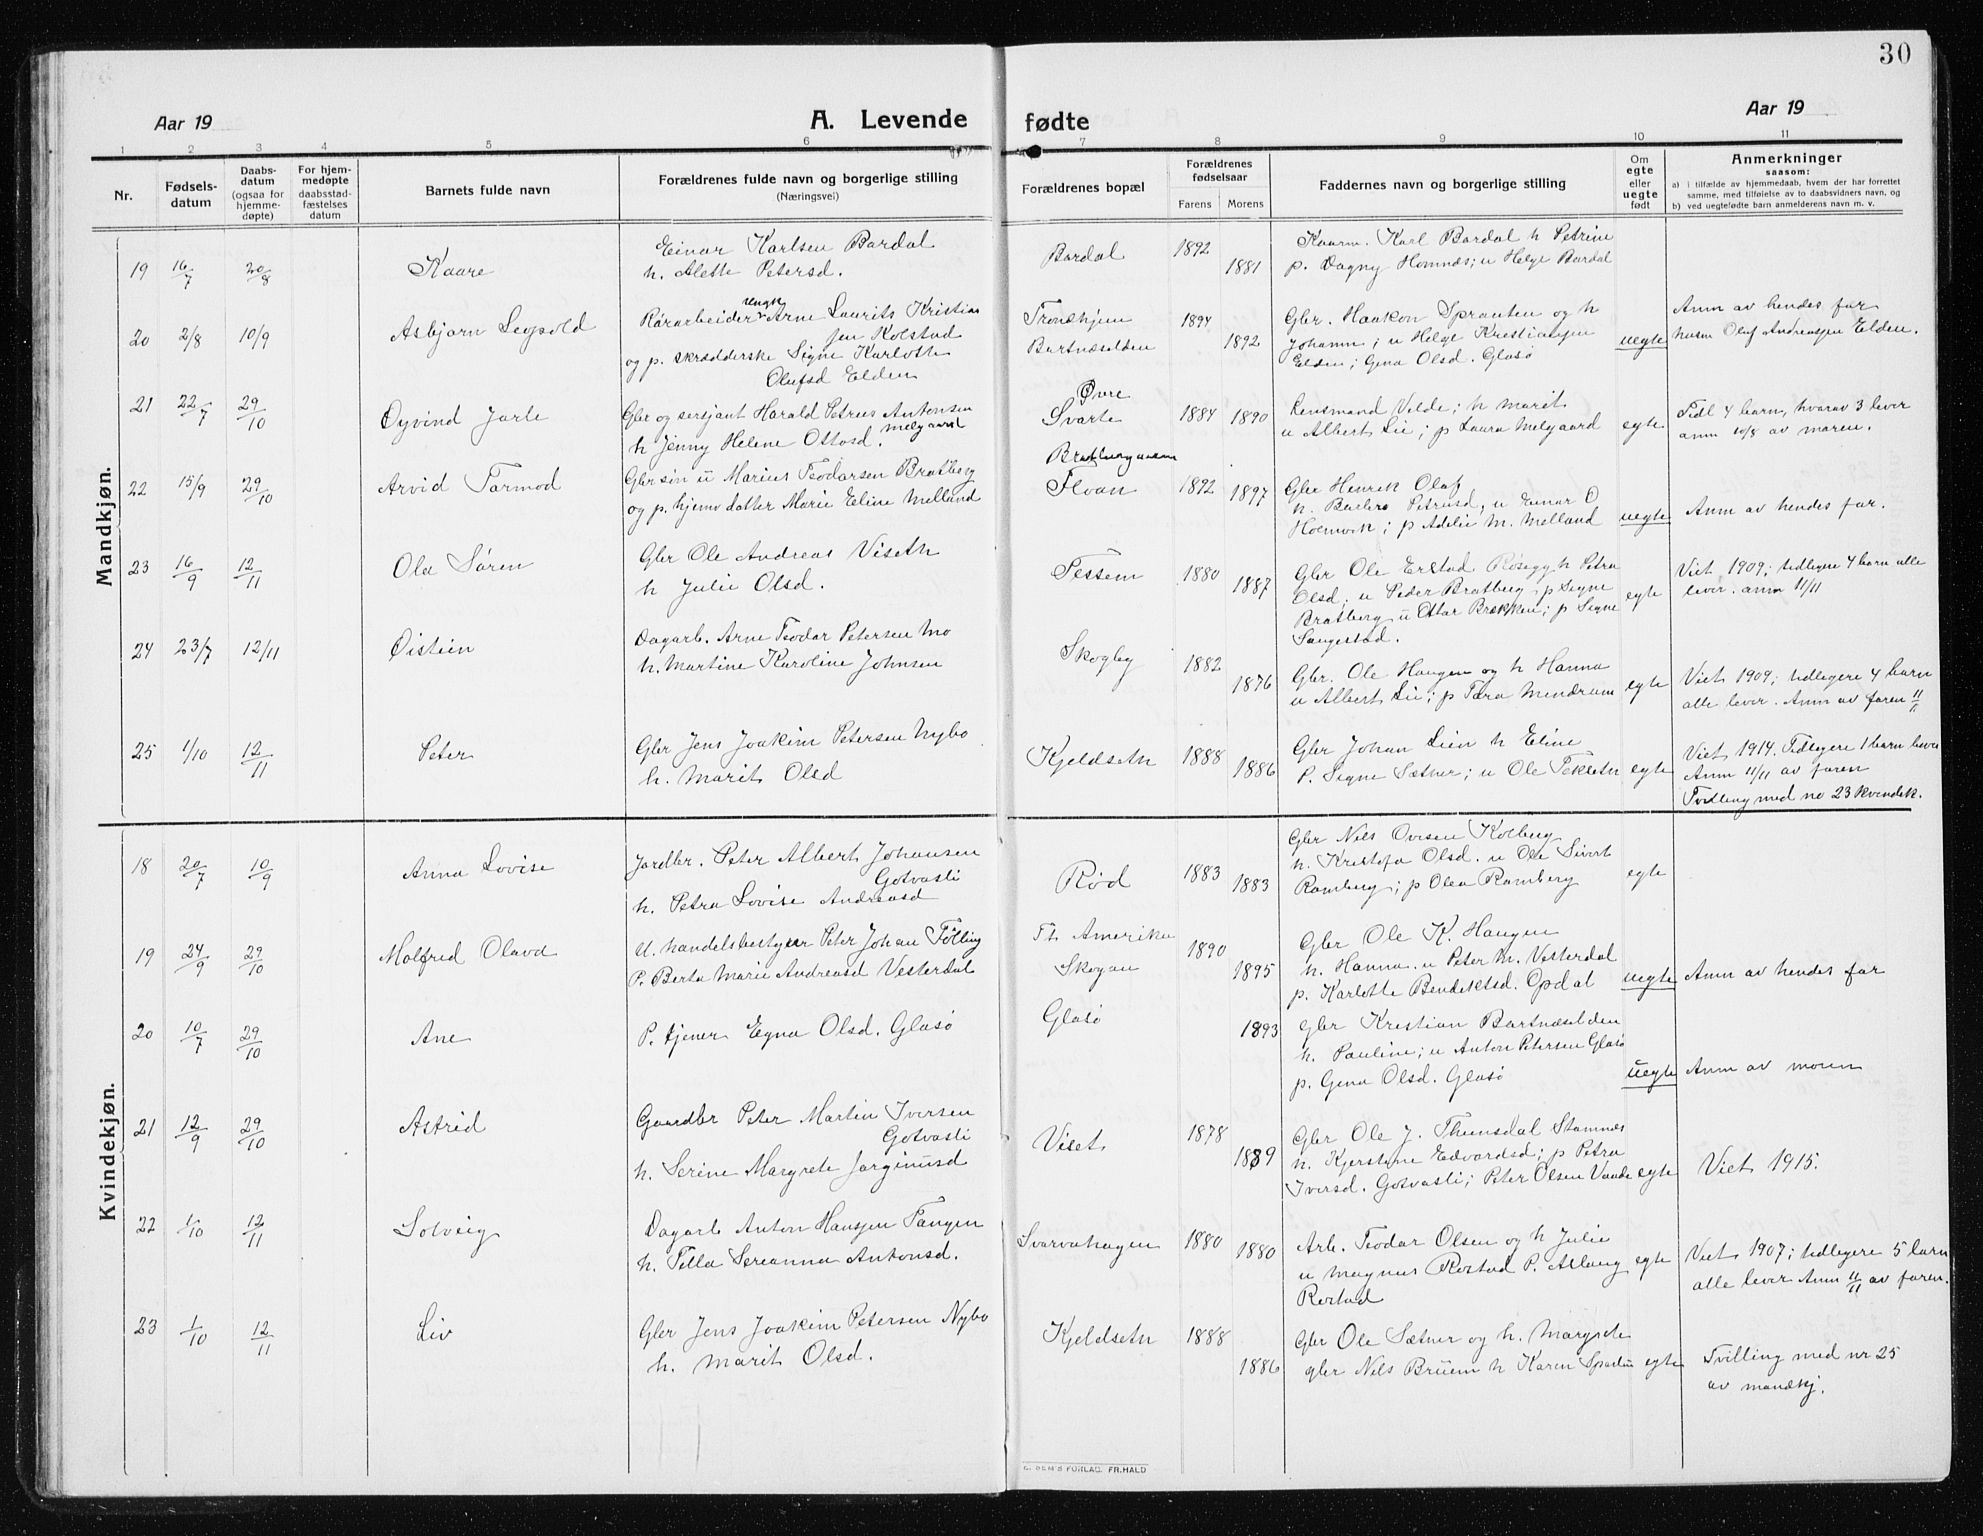 30
Aar 19
A. Levende fødte
Aar 19
1 2 3 4 5 6 7 8 9 10 11
Nr.
Fødsels-
datum
Daabs-
datum
(ogsaa for
hjemme-
døpte)
For hjem-
medøpte
daabsstad-
fæstelses
datum
Barnets fulde navn
Forældrenes fulde navn og borgerlige stilling
(Næringsvei)
Forældrenes bopæl
Forældrenes
fødselsaar
Farens Morens
Faddernes navn og borgerlige stilling
Om
egte
eller
uegte
født
Anmerkninger
saasom:
a) i tilfælde av hjemmedaab, hvem der har forrettet
samme, med tilføielse av to daabsvidners navn, og
b) ved uegtefødte barn anmelderens navn m. v.
Mandkjøn.
19 16/7 20/8 Kaare
Einar Karlsen Bardal
h. Alette Petersd.
Bardal 1892 1881
Kaarm. Karl Bardal h Petrine
p. Dagny Homnes; u Helge Bardal
20 2/8 10/9 Asbjørn Leopold
Rörarbeider ungk Arne Laurits Kristian
sen Kolstad
og p. skrædderske Signe Karlotte
Olufsd Elden
Trondhjem
Bartnæselden
1894 1892
Gbr. Haakon Sprauten og h
Johanna; u Helge Kristiansen
Elden; Gena Olsd. Glasø
uegte
Anm av hendes far
husm Oluf Andreassen Elden.
21 22/7 29/10 Øyvind Jarle
Gbr og sersjant Harald Petrus Antonsen
Melgaard
h Jenny Helene Ottosd.
Øvre
Svarte
1884 1890
Lensmand Velde; h Marit
u Albert Lie; p Laura Melgaard
egte
Tidl 4 barn, hvorav 3 lever
anm 10/8 av moren.
22 15/9 29/10 Arvid Tormod
Gbrsøn u Marius Teodorsen Bratberg
og p. hjemv datter Marie Eline Melland
Floan
1892 1897
Gbr Henrik Oluf
Petrusd, u Einar O
Holmvik; p Adelie M. Melland
uegte
Anm av hendes far.
23 16/9 12/11 Ola Søren
Gbr Ole Andreas Viseth
h Julie Olsd.
Tessem 1880 1887
Gbr Ole Erstad Rösegg h Petra
Olsd; u Peder Bratberg p Signe
Bratberg u Ottar Brækken; p Signe
Saugestad.
egte
Viet 1909; tidligere 4 barn alle
lever. anm 11/11
24 23/7 12/11 Øistein
Dagarb. Arne Teodor Petersen Mo
h. Martine Karoline Johnsen
Skogby 1882 1876
Gbr. Ole Haugen og h Hanna
u Albert Lie; p Tora Mendrum
egte
Viet 1909; tidligere 4 barn
alle lever. Anm av faren 11/11
25 1/10 12/11 Peter
Gbr Jens Joakim Petersen Nybo
h. Marit Olsd
Kjeldseth 1888 1886
Gbr Johan Lien h Eline
P. Signe Sætner; u Ole Tekseth
egte
Viet 1914. Tidligere 1 barn lever
Anm 11/11 av faren
Tvilling med no 23 kvindek.
Kvindekjøn.
18 20/7 10/9 Anna Lovise
Jordbr. Peter Albert Johansen
Gotvasli
h. Petra Lovise Andreasd
Rød 1883 1883
Gbr Nils Ovesen Kolberg
h. Kristofa Olsd. u Ole Sivert
Ramberg; p Olea Ramberg
egte
19 24/9 29/10 Molfrid Olava
U. handelsbestyrer Peter Johan Tölling
P. Berta Marie Andreasd Vesterdal
Th Amerika
Skogan
1890 1895
Gbr Ole K. Haugen
h. Hanna. u Peter M. Vesterdal
p. Karlotte Bendiktsd. Opdal
uegte
Anm av hendes far
20 10/7 29/10 Ane
P. tjener Egna Olsd. Glasø
Glasø 1893
gbr Kristian Bartnæselden
h. Pauline; u Anton Petersen Glasø
p. Gena Olsd. Glasø
uegte
Anm av moren
21 12/9 29/10 Astrid
Gaardbr Peter Martin Iversen
Gotvasli
h. Serine Margrete Jørginusd
Viset 1878 1889
Gbr Ole J. Thunsdal Stamnes
h. Kjerstine Edvardsd; p Petra
Iversd. Gotvasli; Peter Olsen Vaade
egte
Viet 1915.
22 1/10 12/11 Solveig
Dagarb Anton Hansen Tangen
h. Tilla Sereanna Antonsd.
Svarvahagen 1880 1880
Arb. Teodor Olsen og h Julie
u Magnus Rostad P. Aslaug
Rostad
egte
Viet 1907; tidligere 5 barn
alle lever Anm 11/11 av faren.
23 1/10 12/11 Liv
Gbr Jens Joakim Petersen Nybo
h. Marit Olsd.
Kjeldseth 1888 1886
Gbr Ole Sætner og h. Margrete
gbr Nils Bruem h Karen
egte
Tvilling med nr 25
av mandkj.
FORLAG. FR.HALD